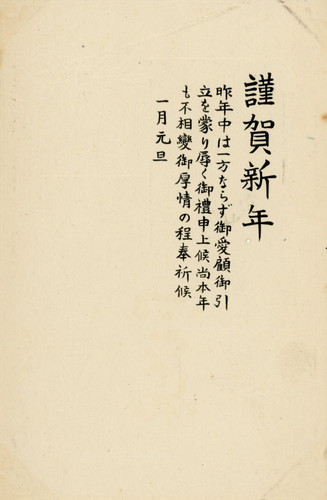 謹賀新年
昨年中は一方ならず御愛顧御引
立を蒙り辱く御禮申上候尚本年
も不相變御厚情の程奉祈候
一月元旦